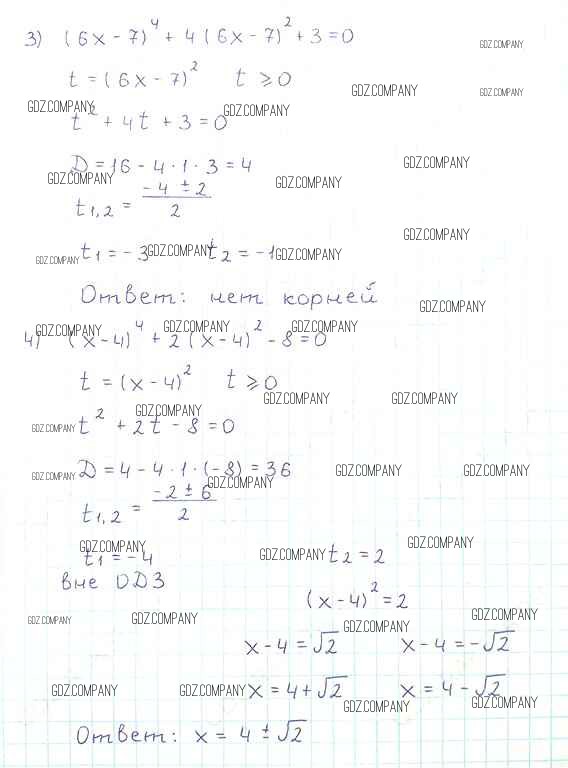 3) (6x - 7)⁴ + 4 (6x - 7)² + 3 = 0
GDZ.COMPANY
t = (6x - 7)² t ⩾ 0
GDZ.COMPANY GDZ.COMPANY
GDZ.COMPANY GDZ.COMPANY
t² + 4t + 3 = 0
D = 16 - 4 · 1 · 3 = 4
GDZ.COMPANY
GDZ.COMPANY GDZ.COMPANY
t₁,₂ = (-4 ± 2)/2
GDZ.COMPANY
t₁ = - 3 t₂ = -1
GDZ.COMPANY GDZ.COMPANY GDZ.COMPANY
Ответ: нет корней
GDZ.COMPANY
GDZ.COMPANY GDZ.COMPANY GDZ.COMPANY
4) (x - 4)⁴ + 2 (x - 4)² - 8 = 0
t = (x - 4)² t ⩾ 0
GDZ.COMPANY GDZ.COMPANY
GDZ.COMPANY
t² + 2t - 8 = 0
GDZ.COMPANY
D = 4 - 4 · 1 · (-8) = 36
GDZ.COMPANY GDZ.COMPANY GDZ.COMPANY
GDZ.COMPANY
t₁,₂ = (-2 ± 6)/2
GDZ.COMPANY GDZ.COMPANY
t₁ = - 4 t₂ = 2
GDZ.COMPANY
вне ОДЗ
(x - 4)² = 2
GDZ.COMPANY GDZ.COMPANY GDZ.COMPANY
GDZ.COMPANY
x - 4 = √2 x - 4 = -√2
x = 4 + √2 x = 4 - √2
GDZ.COMPANY GDZ.COMPANY
GDZ.COMPANY GDZ.COMPANY
Ответ: x = 4 ± √2